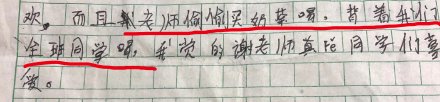 欢。而且谢老师偷偷买奶茶喝，背着我们
全班同学喝，我觉的谢老师真陪同学们喜
爱。